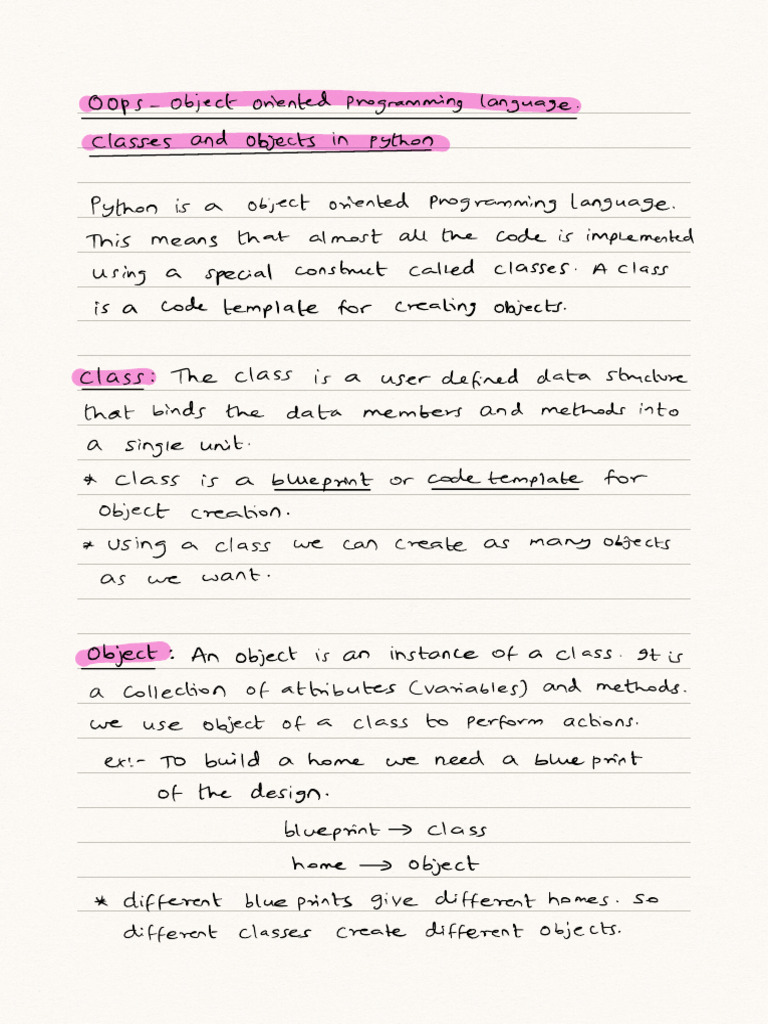 OOps - Object oriented programming language.
Classes and Objects in Python
Python is a object oriented programming language.
This means that almost all the code is implemented
using a special construct called classes. A class
is a code template for creating objects.
Class: The class is a user defined data structure
that binds the data members and methods into
a single unit.
* Class is a blueprint or code template for
object creation.
* Using a class we can create as many objects
as we want.
Object: An object is an instance of a class. It is
a collection of attributes (variables) and methods.
we use object of a class to perform actions.
ex:- To build a home we need a blue print
of the design.
blueprint → class
home → object
* different blue prints give different homes. so
different classes create different objects.